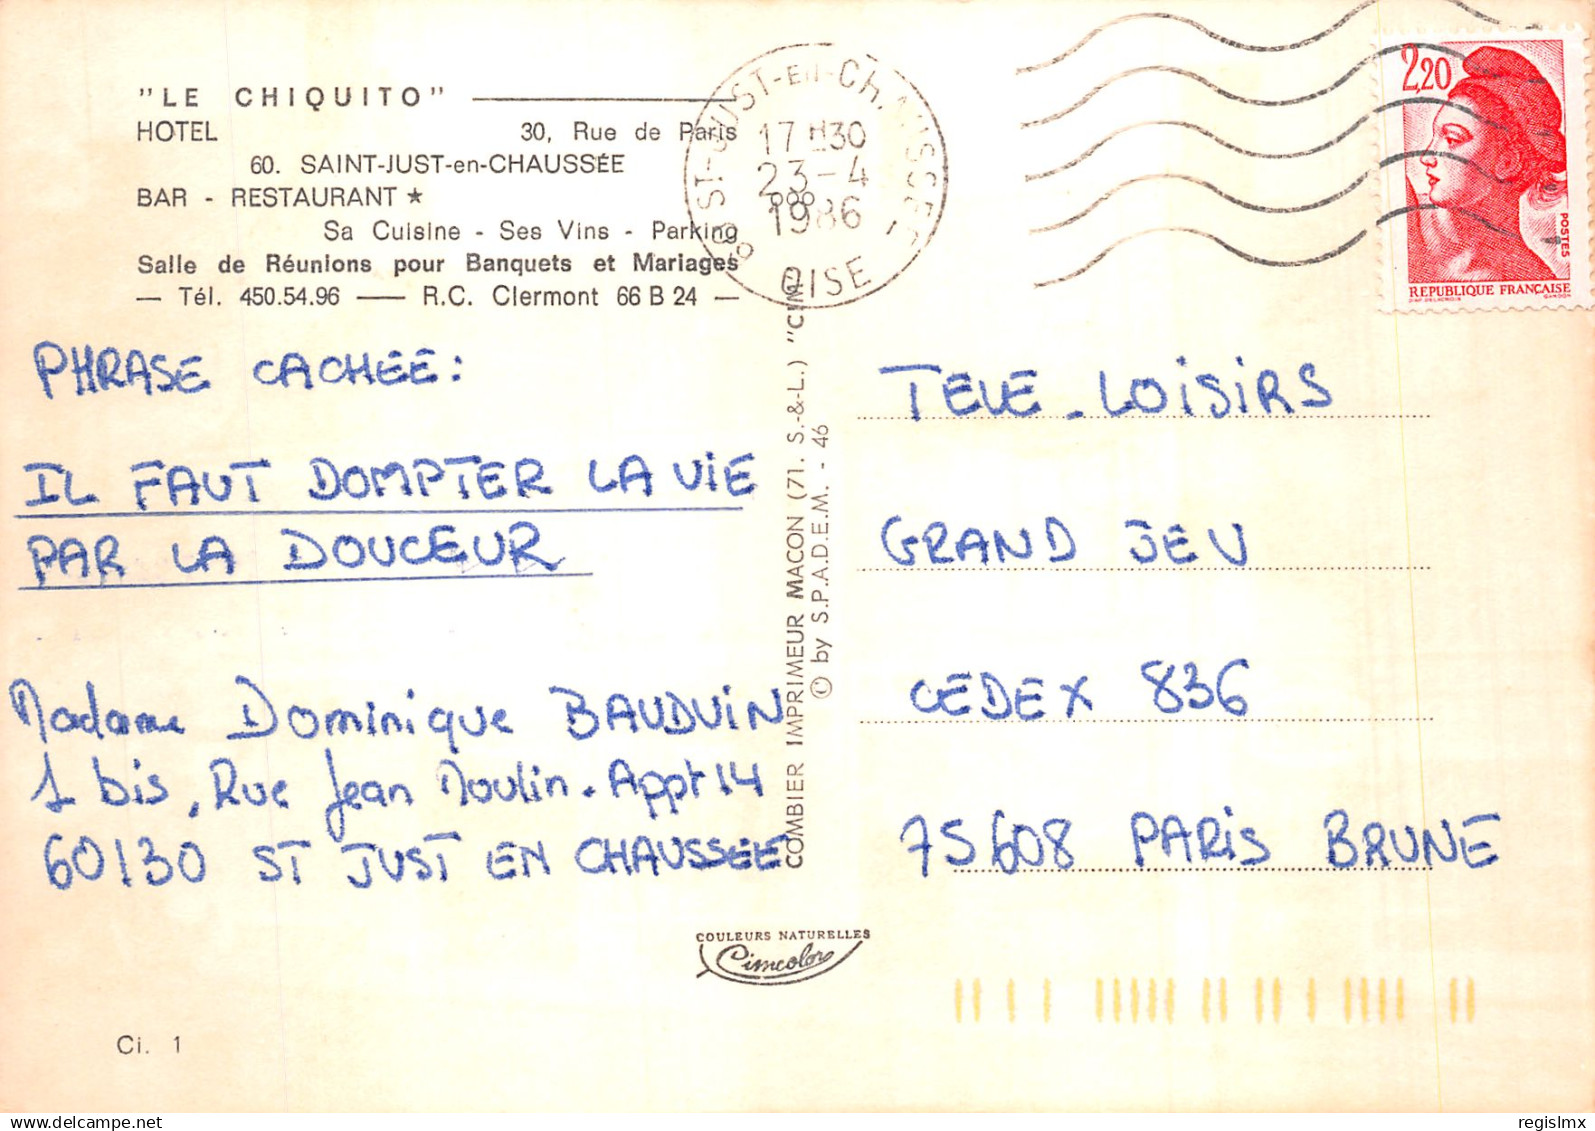 "LE CHIQUITO"
HOTEL 30, Rue de Paris
60. SAINT-JUST-en-CHAUSSÉE
BAR - RESTAURANT ★
Sa Cuisine - Ses Vins - Parking
Salle de Réunions pour Banquets et Mariages
— Tél. 450.54.96 — R.C. Clermont 66 B 24 —
60 ST-JUST-EN-CHAUSSEE
17 H30
23-4
1986
OISE
2,20
POSTES
REPUBLIQUE FRANÇAISE
PHRASE CACHEE:
IL FAUT DOMPTER LA VIE
PAR LA DOUCEUR
Madame Dominique BAUDUIN
1 bis, Rue Jean Moulin. Appt 14
60130 ST JUST EN CHAUSSEE
COMBIER IMPRIMEUR MACON (71. S.-&-L.) "CIM"
© by S.P.A.D.E.M. - 46
TELE-LOISIRS
GRAND JEU
CEDEX 836
75608 PARIS BRUNE
COULEURS NATURELLES
Cimcolor
Ci. 1
delcampe.net
regislmx